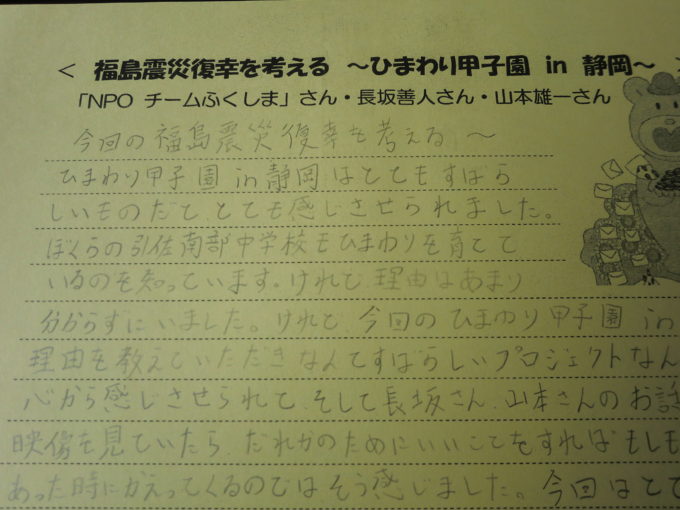 ＜ 福島震災復幸を考える ～ひまわり甲子園 in 静岡～ ＞
「NPO チームふくしま」さん・長坂善人さん・山本雄一さん
今回の福島震災復幸を考える～
ひまわり甲子園in静岡はとてもすばら
しいものだと、とても感じさせられました。
ぼくらの引佐南部中学校もひまわりを育てて
いるのを知っています。けれど理由はあまり
分からずにいました。けれど、今回のひまわり甲子園in
理由を教えていただきなんてすばらしいプロジェクトなん
心から感じさせられて、そして長坂さん、山本さんのお話
映像を見ていたら、だれかのためにいいことをすればもしも
あった時にかえってくるのではそう感じました。今回はとて